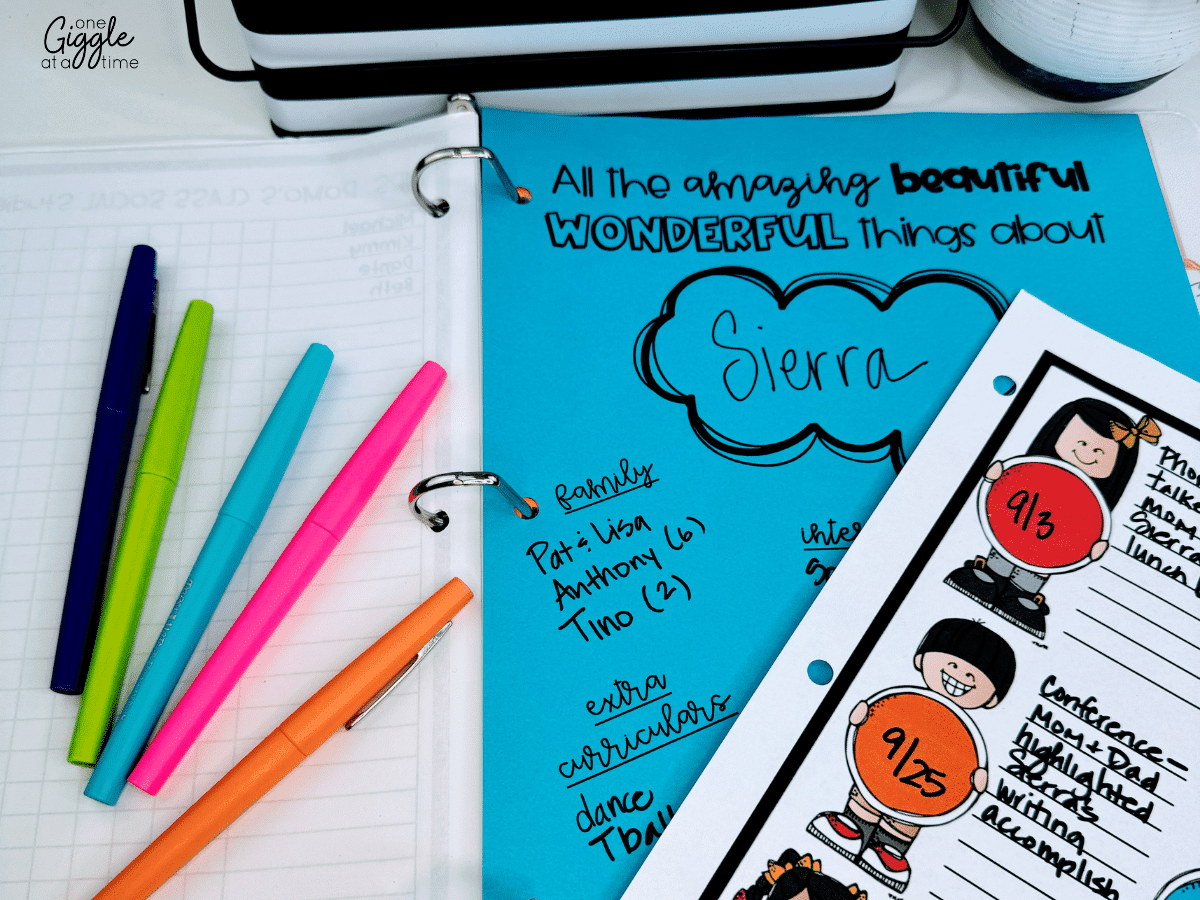 one
Giggle
at a time
Michael
Kimmy
Dante
Beth
All the amazing beautiful
WONDERFUL things about
Sierra
family
Pat & Lisa
Anthony (6)
Tino (2)
extra
curriculars
dance
Tball
9/3
mom
Sierra
lunch
9/25
Conference-
Mom + Dad
highlighted
Sierra's
writing
accomplish